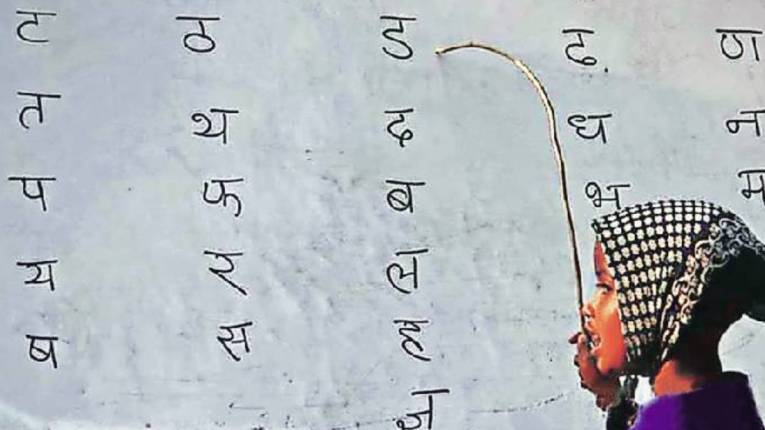 ट ठ ड ढ़ ण
त थ द ध न
प फ ब भ म
य र ल
ष स ह